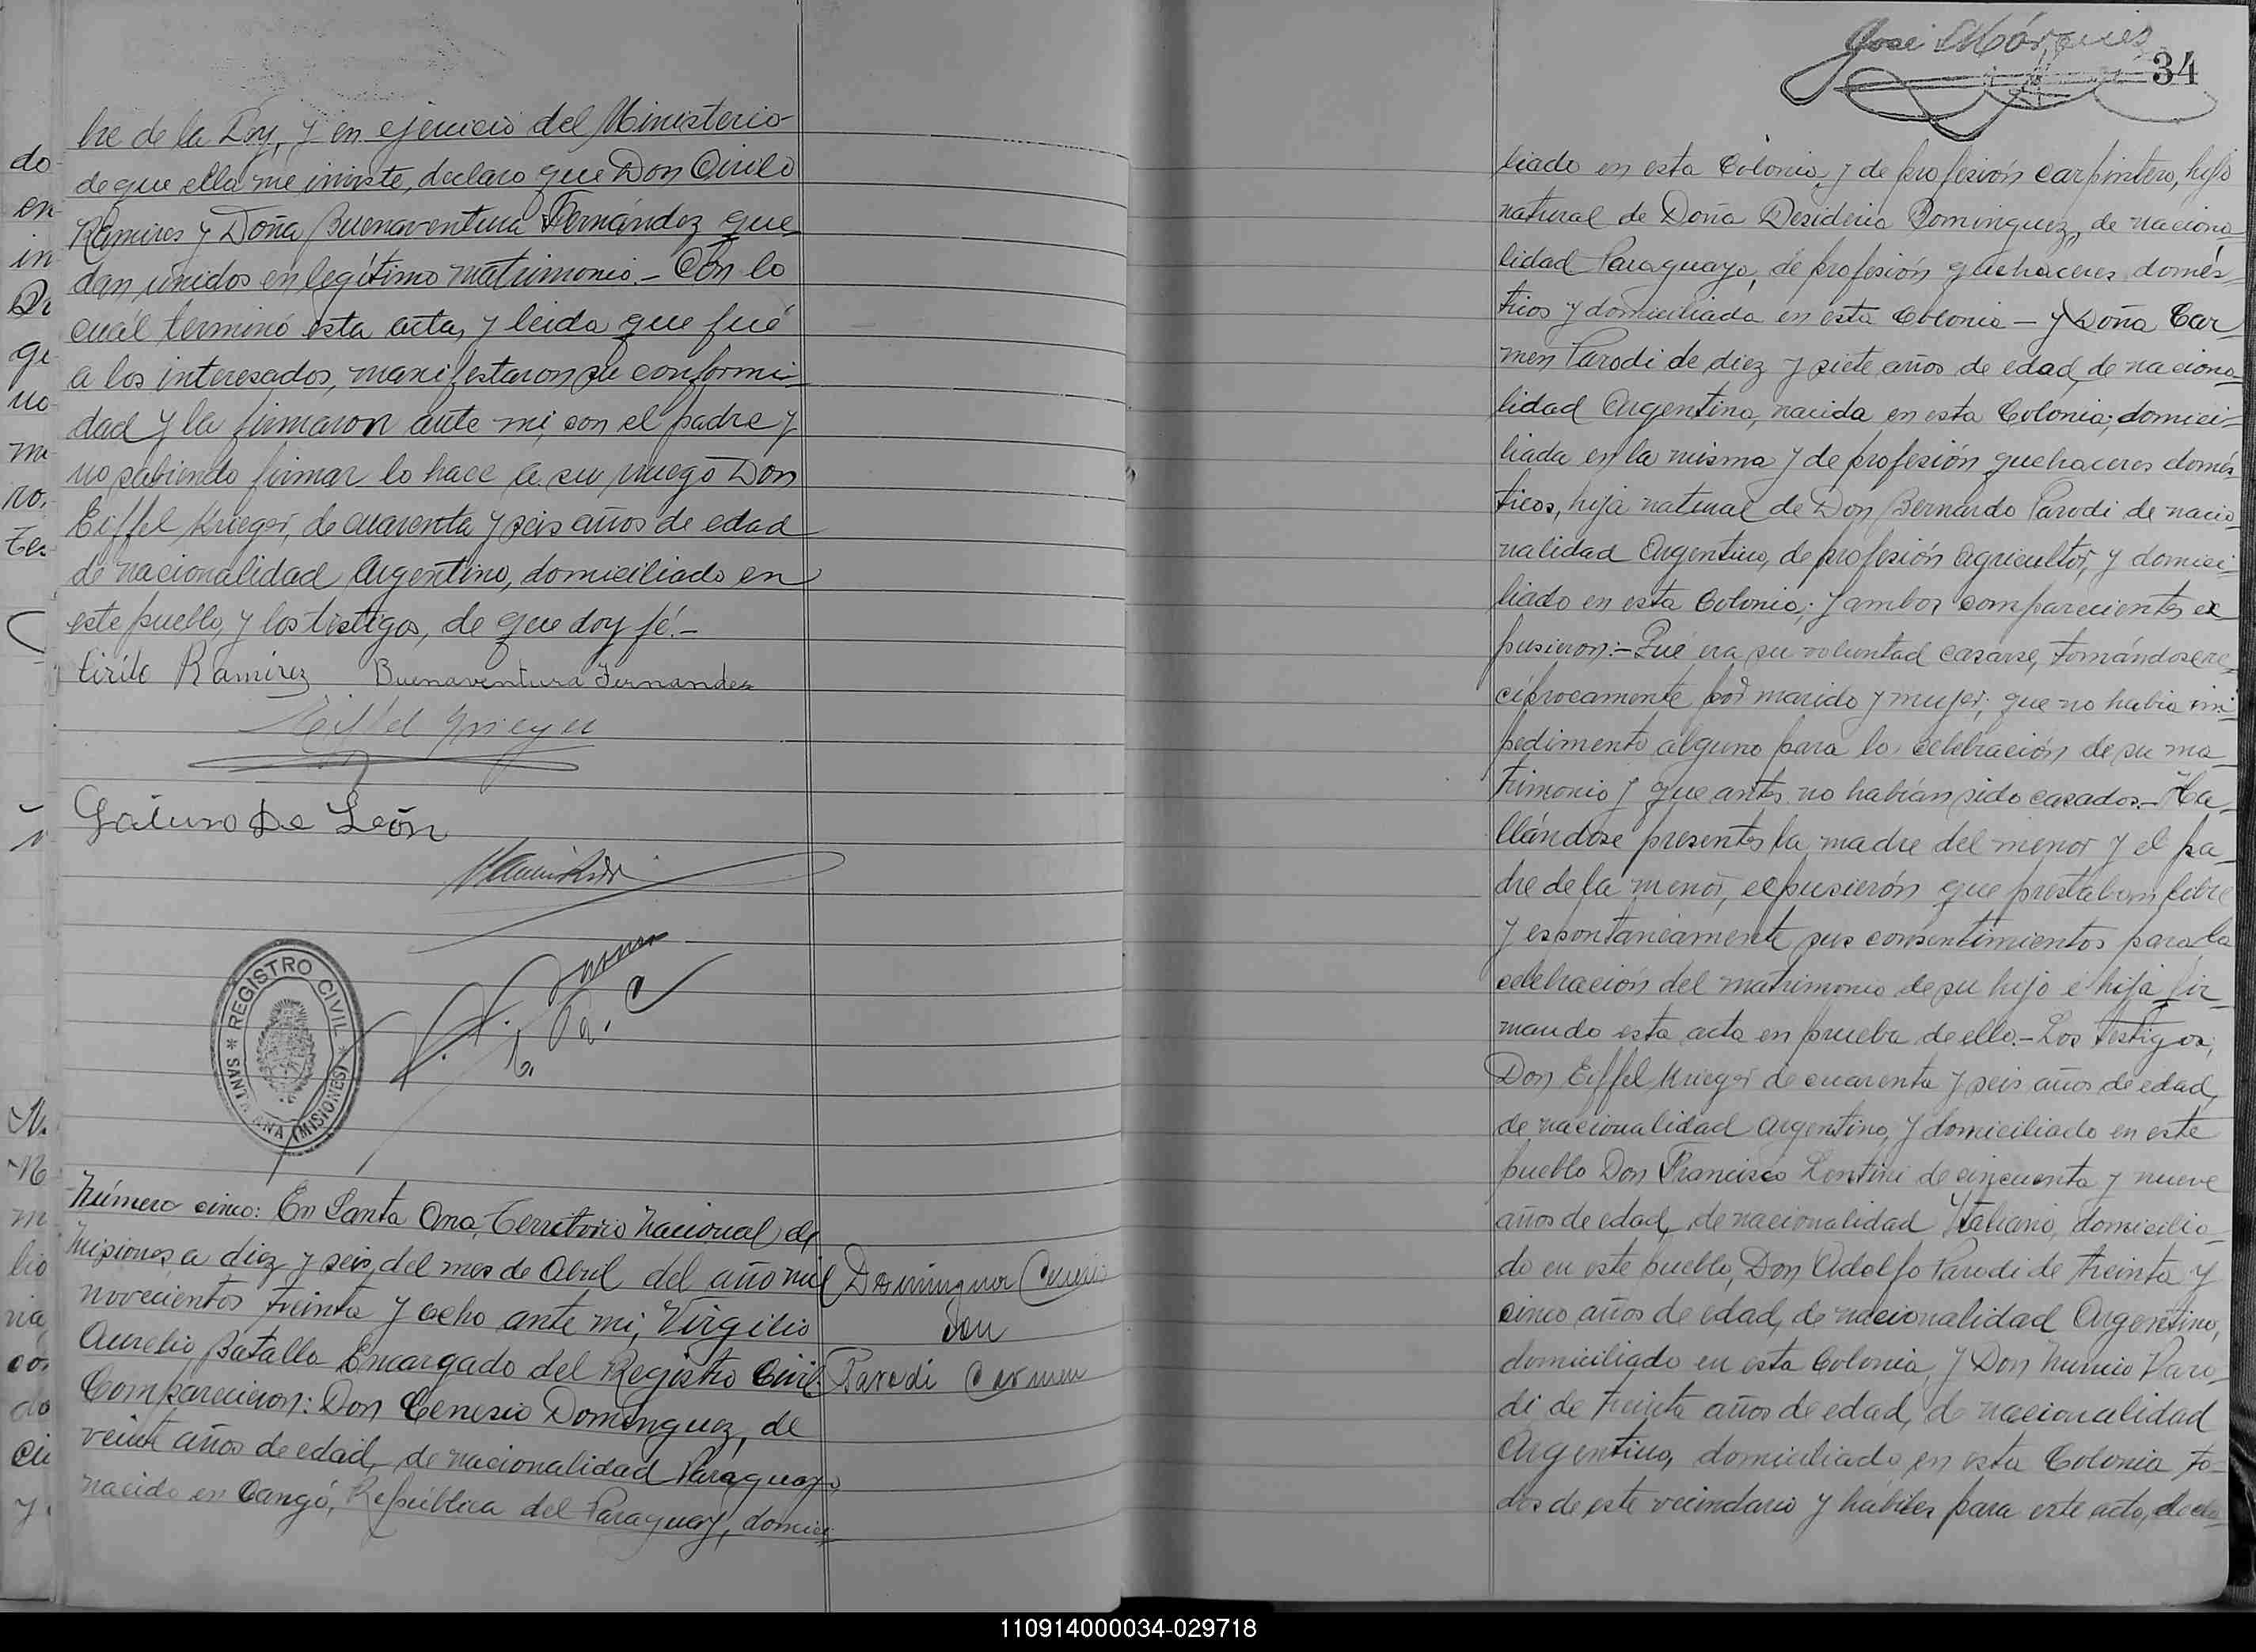 bre de la Ley, y en ejercicio del Ministerio
de que ella me inviste, declaro que Don Cirilo
Ramires y Doña Buenaventura Fernández que
dan unidos en legítimo matrimonio.- Con lo
cuál terminó esta acta, y leida que fué
a los interesados, manifestaron su conformi-
dad y la firmaron ante mi, con el padre y
no sabiendo firmar lo hace a su ruego Don
Eiffel Krieger, de cuarenta y seis años de edad
de nacionalidad Argentino, domiciliado en
este pueblo, y los testigos, de que doy fé.-
Cirilo Ramírez Buenaventura Fernandez
De León
REGISTRO CIVIL
SANTA ANA (MISIONES)
Número cinco: En Santa Ana, Territorio Nacional de
Misiones, a diez y seis del mes de Abril del año mil
novecientos treinta y ocho ante mi, Virgilio
Aurelio Batalla Encargado del Registro Civil
Comparecieron: Don Cenesio Dominguez, de
veinte años de edad, de nacionalidad Paraguayo,
nacido en Cangó, República del Paraguay, domici-
Dominguez
con
Parodi Carmen
do
en
in
De
ge
no
me
ro,
tes
m
lio
na
con
do
cie
y
José Márquez
34
liado en esta Colonia, y de profesión carpintero, hijo
natural de Doña Desideria Dominguez, de naciona-
lidad Paraguaya, de profesión quehaceres domés-
ticos y domiciliada en esta Colonia - y Doña Car
men Parodi de diez y siete años de edad, de naciona-
lidad Argentina, nacida en esta Colonia; domici-
liada en la misma y de profesión quehaceres domés
ticos, hija natural de Don Bernardo Parodi de nacio-
nalidad Argentino, de profesión agricultor, y domici-
liado en esta Colonia; y ambos comparecientes ex
pusieron:- Qué era su voluntad casarse, tomándose re-
cíprocamente por marido y mujer; que no habia im-
pedimento alguno para la celebración de su ma-
trimonio y que antes no habían sido casados.- Ha-
llándose presentes la madre del menor y el pa-
dre de la menor, expusierón que prestaban libre
y espontaneamente sus consentimientos para la
celebración del matrimonio de su hijo é hija fir-
mando esta acta en prueba de ello.- Los testigos;
Don Eiffel Krieger de cuarenta y seis años de edad,
de nacionalidad argentino, y domiciliado en este
pueblo Don Francisco Lentini de cincuenta y nueve
años de edad, de nacionalidad Italiano, domicilia-
do en este pueblo, Don Adolfo Parodi de treinta y
cinco años de edad, de nacionalidad Argentino,
domiciliado en esta Colonia, y Don Nuncio Paro-
di de treinta años de edad, de nacionalidad
Argentino, domiciliado en esta Colonia to-
dos de este vecindario y hábiles para este acto, decla-
110914000034-029718